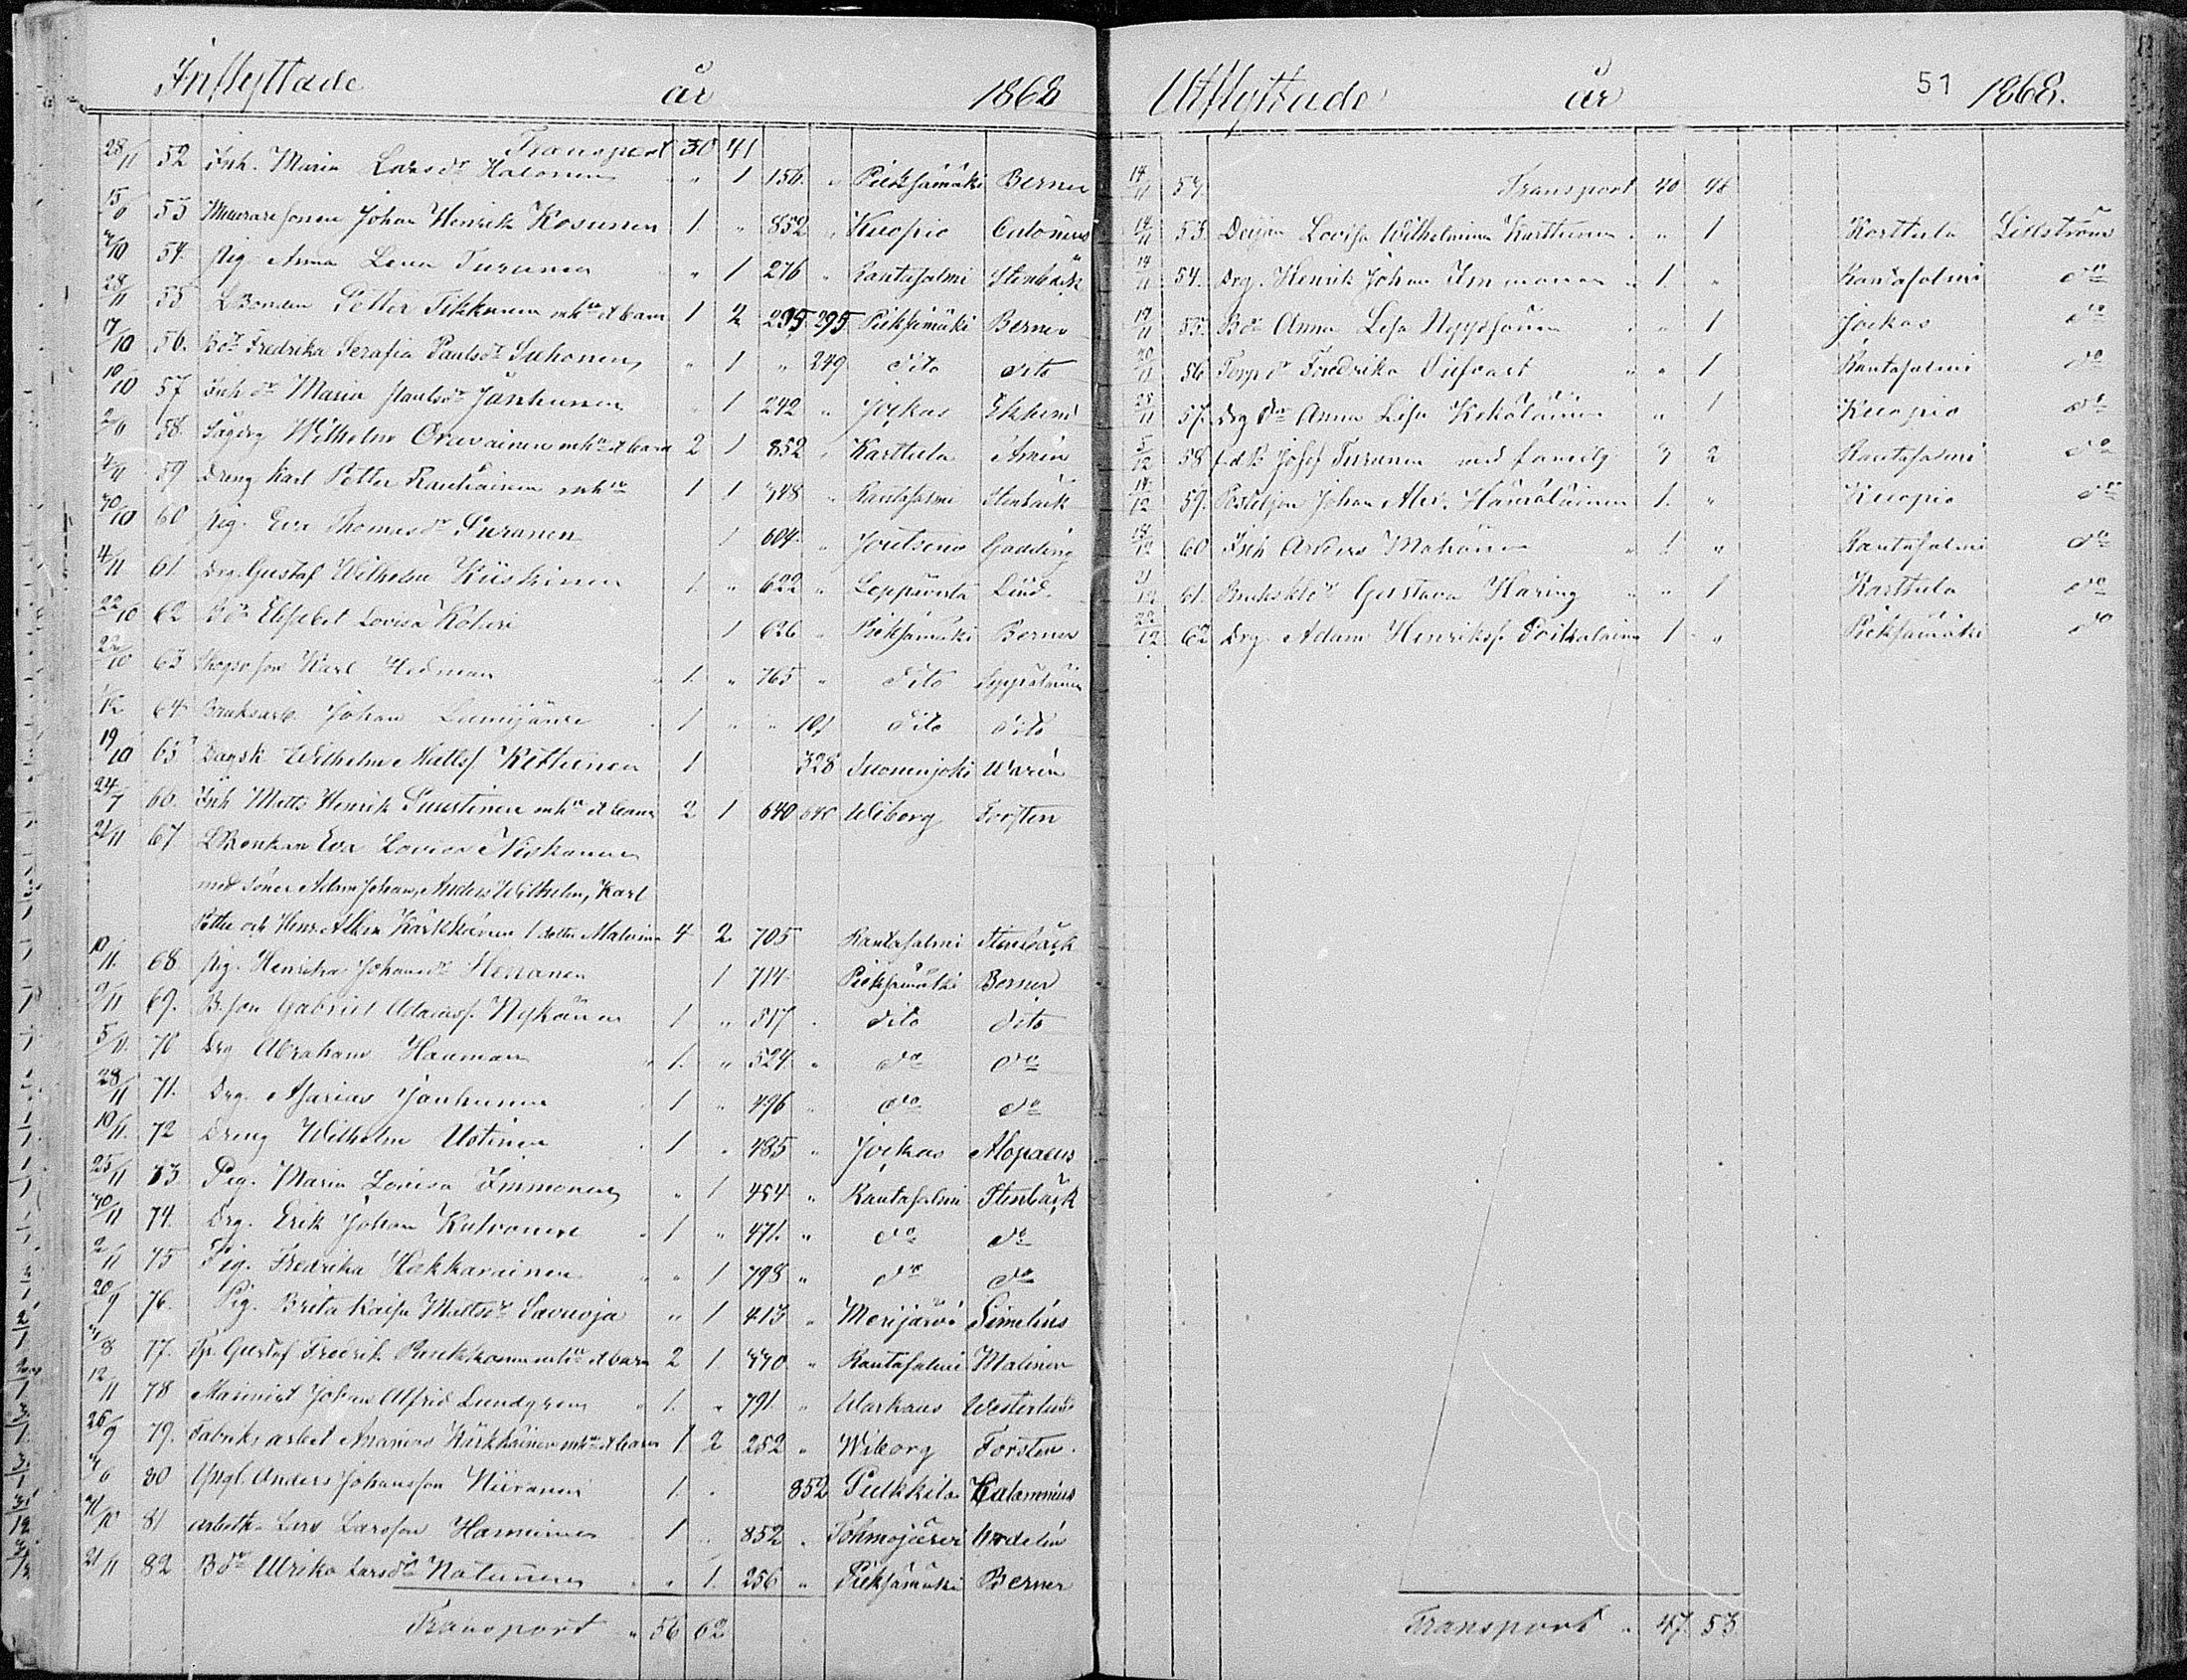 Inflyttade år 1868
Transport 30 41
28/11 52 Inh. Maria Larsdr Halonen " 1 156 " Pieksämäki Berner
15/6 53 Murare sonen Johan Henrik Kosunen 1 " 852 " Kuopio
/10 54. Pig. Anna Lena Turunen " 1 276 " Rantasalmi Stenbäck
28/11 55 LBonden Petter Tikkanen m hu et barn 1 2 295 295 Pieksämäki Berner
17/10 56. Bdr Fredrika Serafia Paulsdr Suhonen " 1 " 249 dito dito
10/10 57 Inh dr Maria Paulsdr Jänhunen " 1 242 " Jockas
2/6 58. Sågdrg Wilhelm Oravainen m hu et barn 2 1 852 " Karttula Aminé
4/11 59 Dreng Karl Petter Rautiainen m hu 1 1 348 " Rantasalmi Stenbäck
30/10 60 Pig. Eva Thomasdr Puranen 1 604 " Joutseno Gadding
4/11 61. Drg. Gustaf Wilhelm Kiiskinen 1. " 622 " Leppävirta Lind.
22/10 62 Bdr Elisabet Lovisa Kolari 1 626 " Pieksämäki Berner
22/10 63 Karl Hedman " 1. " 765 " dito Seppäläinen
/12 64 Bruksarb. Johan Lumijärvi 1 " " 101 dito dito
19/10 65 Dagsk. Wilhelm Mattsf. Kettunen 1 328 Suonenjoki Warén
24/7 66. Inh Matts Henrik Puustinen m hu et barn 2 1 640 640 Wiborg Forstén
21/11 67 LBonkan Eva Lovisa Niskanen
med söner Adam Johan, Anders Wilhelm, Karl
Petter och Henr. Albin Kärkkäinen 1 dotter Malvina 4 2 705 Rantasalmi Stenbäck
10/11. 68. Pig. Henrika Johansdr Herranen 1 714. Pieksämäki Berner
9/11 69. B.son Gabriel Adamsf. Nykänen 1 " 817 . dito dito
5/11. 70 Drg Abraham Hauman " 1. " 524. " do do
28/11 71. Drg. Asarias Jänhunen 1 " 496 " do do
10/11. 72 Dreng Wilhelm Ustinen 1 " 485 " Jockas Alopaeus
25/11 73 Pig. Maria Lovisa Immonen " 1 454 " Rantasalmi Stenbäck
30/11 74. Drg. Erik Johan Kulvanen 1 " 471. " do do
2/11 75 Pig. Fredrika Hokkarainen " " 1 798 " do do
20/9 76. Pig. Brita Kaisa Mattsdr Savuoja " 1 413 " Merijärvi Simelius
/8 77. Gustaf Fredrik m hu et barn 2 1 440 " Rantasalmi Malinen
12/11 78 Maskinist Johan Alfrid Lundgren " 1. " 791. " Warkaus Westerlund
26/9 79. Fabriks arbet Ananias Kärkkäinen m hu et barn 1 2 252 " Wiborg Forsten.
/6 80 Yngl. Anders Johansson Niiranen 1. . 852 Pulkkila Calamnius
31/10 81 Arbetk. Lars Larsson Hamunen 1 " 852 . Tohmajärvi
21/11 82 Bdr Ulrika Larsdr Natunen " " 1. 256 " Pieksämäki Berner
Transport " 56 62
Utflyttade år 51 1868.
Transport 40 46
14/11 53. Lovisa Wilhelmina Karttunen " 1 Karttula Lillström
14/11 54. Drg. Henrik Johan Immonen " 1. " Rantasalmi do
19/11 55. Bdr Anna Lisa Nyyssönen " " 1 Jockas do
20/11 56 Torp dr Fredrika " " 1 Rantasalmi do
25/11 57. Drg dr Anna Lisa Kekäläinen " 1 Kuopio do
5/12 58 f.d. B Josef Turunen med familj 3 2 Rantasalmi do
14/12 59. Postiljon Johan Alex. Hämäläinen 1. " Kuopio do
18/12 60 Inh Anders Mahönen " 1 " Rantasalmi do
21/12 61. Gustava Haring " " 1 Karttula do
22/12 62 Drg. Adam Henriksf. Poikolainen 1 " Pieksämäki do
Transport " 47. 53